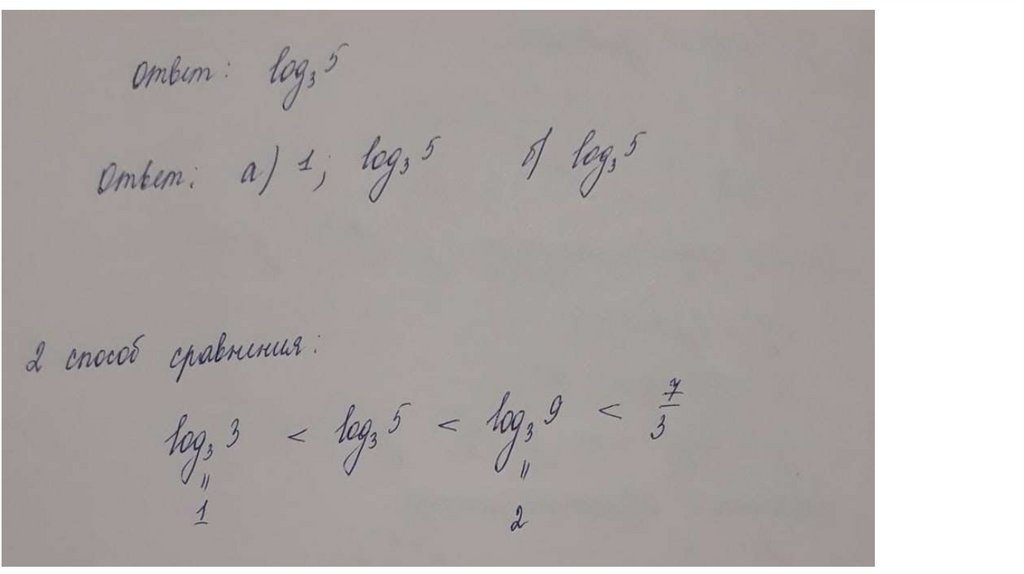 Ответ: log₃5
Ответ: а) 1; log₃5 б) log₃5
2 способ сравнения:
log₃3 < log₃5 < log₃9 < 7/3
" "
1 2